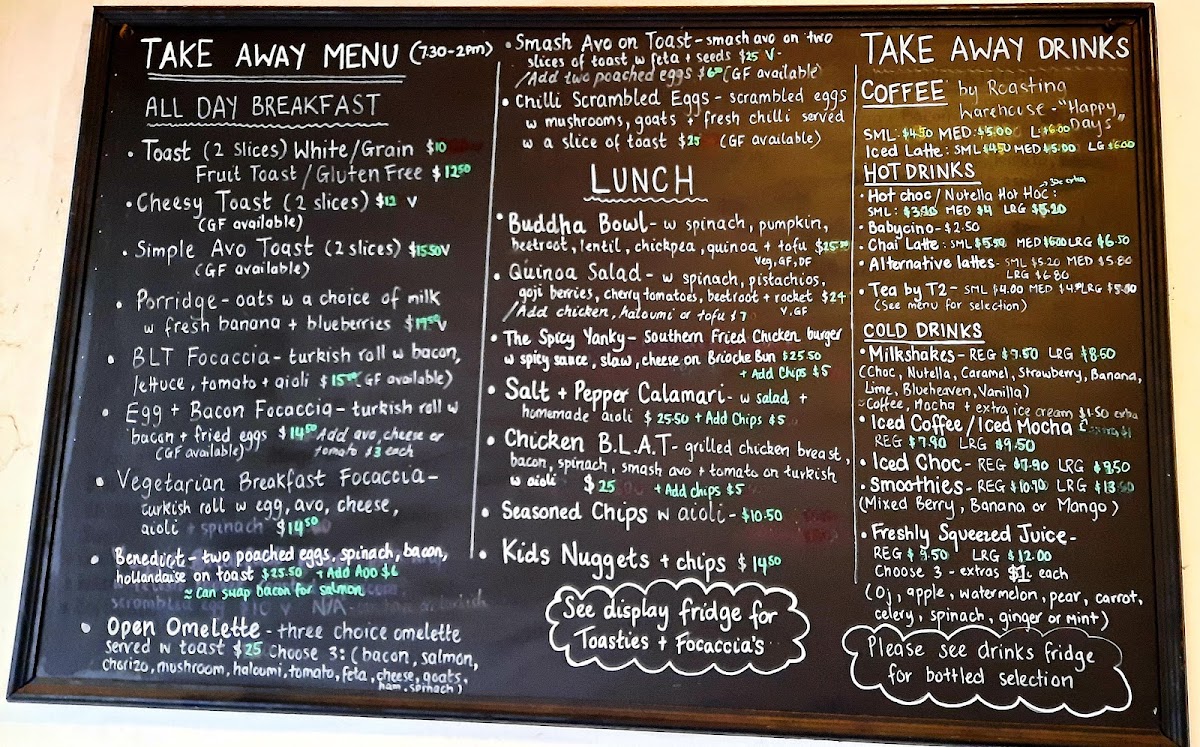 TAKE AWAY MENU (7.30-2pm)
ALL DAY BREAKFAST
• Toast (2 slices) White/Grain $10
Fruit Toast / Gluten Free $12⁵⁰
• Cheesy Toast (2 slices) $12 V
(GF available)
• Simple Avo Toast (2 slices) $15.50 V
(GF available)
• Porridge - oats w a choice of milk
w fresh banana + blueberries V
• BLT Focaccia - turkish roll w bacon,
lettuce, tomato + aioli (GF available)
• Egg + Bacon Focaccia - turkish roll w
bacon + fried eggs $14⁵⁰ Add avo, cheese or
(GF available) tomato $3 each
• Vegetarian Breakfast Focaccia -
turkish roll w egg, avo, cheese,
aioli + spinach $14⁵⁰
• Benedict - two poached eggs, spinach, bacon,
hollandaise on toast $25.50 + Add Avo $6
≈ can swap bacon for salmon
• Open Omelette - three choice omelette
served w toast $25 choose 3: (bacon, salmon,
chorizo, mushroom, haloumi, tomato, feta, cheese, goats,
ham, spinach)
• Smash Avo on Toast - smash avo on two
slices of toast w feta + seeds $25 V
/Add two poached eggs (GF available)
• Chilli Scrambled Eggs - scrambled eggs
w mushrooms, goats + fresh chilli served
w a slice of toast $25 (GF available)
LUNCH
• Buddha Bowl - w spinach, pumpkin,
beetroot, lentil, chickpea, quinoa + tofu
Veg, GF, DF
• Quinoa Salad - w spinach, pistachios,
goji berries, cherry tomatoes, beetroot + rocket $24
/Add chicken, haloumi or tofu $7 V, GF
• The Spicy Yanky - Southern Fried Chicken burger
w spicy sauce, slaw, cheese on Brioche Bun $25.50
+ Add Chips $5
• Salt + Pepper Calamari - w salad +
homemade aioli $25.50 + Add Chips $5
• Chicken B.L.A.T - grilled chicken breast,
bacon, spinach, smash avo + tomato on turkish
w aioli $25 + Add chips $5
• Seasoned Chips w aioli - $10.50
• Kids Nuggets + chips $14⁵⁰
See display fridge for
Toasties + Focaccia's
TAKE AWAY DRINKS
COFFEE by Roasting
Warehouse - "Happy
Days"
SML: $4.50 MED: $5.00 L: $6.00
Iced Latte: SML $4.50 MED $5.00 LG $6.00
HOT DRINKS
30c extra
• Hot choc / Nutella Hot Hoc:
SML: MED $4 LRG $5.20
• Babycino - $2.50
• Chai Latte: SML $5.50 MED $6.00 LRG $6.50
• Alternative lattes - SML $5.20 MED $5.80
LRG $6.80
• Tea by T2 - SML $4.00 MED LRG $5.00
(See menu for selection)
COLD DRINKS
• Milkshakes - REG LRG $8.50
(Choc, Nutella, Caramel, Strawberry, Banana,
Lime, Blueheaven, Vanilla)
Coffee, Mocha + extra ice cream $1.50 extra
• Iced Coffee / Iced Mocha
REG $7.90 LRG $9.50
• Iced Choc - REG $7.90 LRG $9.50
• Smoothies - REG $10.90 LRG
(Mixed Berry, Banana or Mango)
• Freshly Squeezed Juice -
REG $9.50 LRG $12.00
Choose 3 - extras $1 each
(Oj, apple, watermelon, pear, carrot,
celery, spinach, ginger or mint)
Please see drinks fridge
for bottled selection